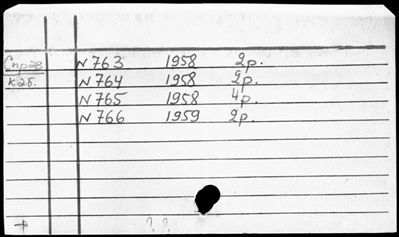 Справ N 763 1958 2р.
каб. N 764 1958 2р.
N 765 1958 4р.
N 766 1959 2р.
? ?